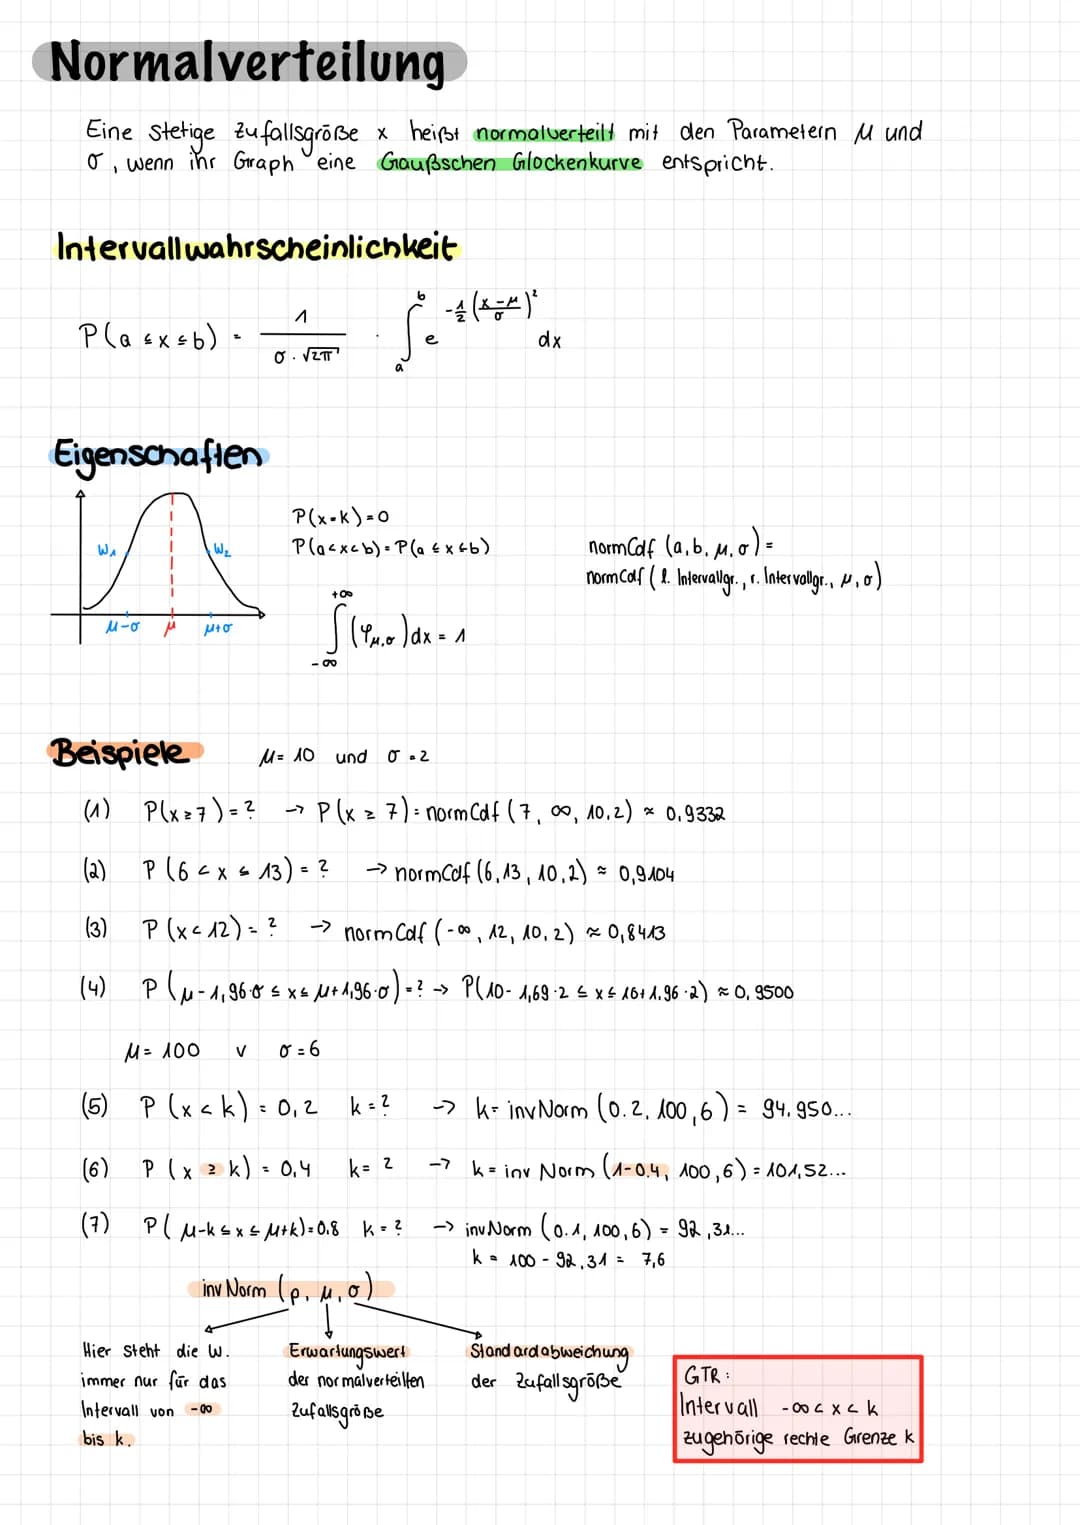 Normalverteilung
Eine stetige Zufallsgröße x heißt normalverteilt mit den Parametern μ und
σ, wenn ihr Graph eine Gaußschen Glockenkurve entspricht.
Intervallwahrscheinlichkeit
P(a ≤ x ≤ b) = 1/(σ · √2π) · ∫_a^b e^(-1/2 ((x-μ)/σ)²) dx
Eigenschaften
W₁ W₂
μ-σ μ μ+σ
P(x=k)=0
P(a<x<b) = P(a ≤ x ≤ b)
∫_{-∞}^{+∞} (φ_{μ,σ}) dx = 1
normCdf (a, b, μ, σ) =
normCdf (l. Intervallgr., r. Intervallgr., μ, σ)
Beispiele μ= 10 und σ = 2
(1) P(x≥7) = ? → P(x ≥ 7) = normCdf (7, ∞, 10, 2) ≈ 0,9332
(2) P (6 < x ≤ 13) = ? → normCdf (6, 13, 10, 2) ≈ 0,9104
(3) P (x < 12) = ? → normCdf (-∞, 12, 10, 2) ≈ 0,8413
(4) P (μ - 1,96·σ ≤ x ≤ μ+1,96·σ) = ? → P(10 - 1,69 ·2 ≤ x ≤ 10+ 1,96 ·2) ≈ 0,9500
μ= 100 v σ = 6
(5) P (x < k) = 0,2 k = ? → k= invNorm (0.2, 100, 6) = 94.950...
(6) P (x ≥ k) = 0,4 k= ? → k = inv Norm (1-0.4, 100, 6) = 101,52...
(7) P( μ-k ≤ x ≤ μ+k) = 0.8 k = ? → invNorm (0.1, 100, 6) = 92,31...
k = 100 - 92,31 = 7,6
inv Norm (p, μ, σ)
Hier steht die W.
immer nur für das
Intervall von -∞
bis k.
Erwartungswert
der normalverteilten
Zufallsgröße
Standardabweichung
der Zufallsgröße
GTR:
Intervall -∞ < x < k
zugehörige rechte Grenze k